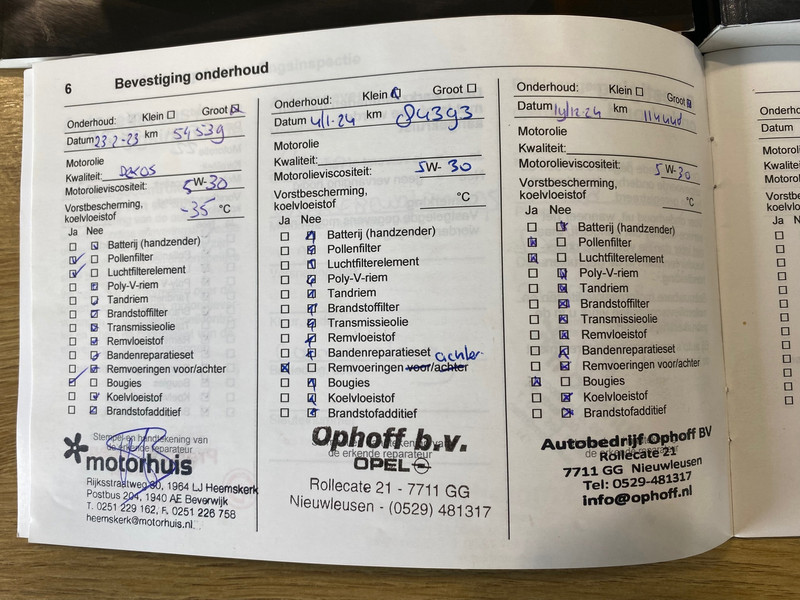 6 Bevestiging onderhoud
Onderhoud: Klein ☐ Groot ☒
Datum 23-2-23 km 54539
Motorolie
Kwaliteit:
Motorolieviscositeit: 5W-30
Vorstbescherming,
koelvloeistof -35 °C
Ja Nee
☐ ☒ Batterij (handzender)
☑ ☐ Pollenfilter
☑ ☐ Luchtfilterelement
☐ ☒ Poly-V-riem
☐ ☒ Tandriem
☐ ☒ Brandstoffilter
☐ ☒ Transmissieolie
☐ ☒ Remvloeistof
☐ ☒ Bandenreparatieset
☐ ☒ Remvoeringen voor/achter
☑ ☐ Bougies
☐ ☒ Koelvloeistof
☐ ☒ Brandstofadditief
Stempel en handtekening van
de erkende reparateur
motorhuis
Rijksstraatweg 80, 1964 LJ Heemskerk
Postbus 204, 1940 AE Beverwijk
T. 0251 229 162, F. 0251 226 758
heemskerk@motorhuis.nl
Onderhoud: Klein ☒ Groot ☐
Datum 4/1-24 km 84393
Motorolie
Kwaliteit:
Motorolieviscositeit: 5W-30
Vorstbescherming,
koelvloeistof °C
Ja Nee
☐ ☒ Batterij (handzender)
☐ ☒ Pollenfilter
☐ ☒ Luchtfilterelement
☐ ☒ Poly-V-riem
☐ ☒ Tandriem
☐ ☒ Brandstoffilter
☐ ☒ Transmissieolie
☐ ☒ Remvloeistof
☐ ☒ Bandenreparatieset achter
☒ ☐ Remvoeringen voor/achter
☐ ☒ Bougies
☐ ☒ Koelvloeistof
☐ ☒ Brandstofadditief
de erkende reparateur
Ophoff b.v.
OPEL
Rollecate 21 - 7711 GG
Nieuwleusen - (0529) 481317
Onderhoud: Klein ☐ Groot ☒
Datum 19/12-24 km
Motorolie
Kwaliteit:
Motorolieviscositeit: 5W-30
Vorstbescherming,
koelvloeistof °C
Ja Nee
☐ ☒ Batterij (handzender)
☒ ☐ Pollenfilter
☒ ☐ Luchtfilterelement
☐ ☒ Poly-V-riem
☐ ☒ Tandriem
☐ ☒ Brandstoffilter
☐ ☒ Transmissieolie
☐ ☒ Remvloeistof
☐ ☒ Bandenreparatieset
☐ ☒ Remvoeringen voor/achter
☒ ☐ Bougies
☐ ☒ Koelvloeistof
☐ ☒ Brandstofadditief
de erkende reparateur
Autobedrijf Ophoff BV
Rollecate 21
7711 GG Nieuwleusen
Tel: 0529-481317
info@ophoff.nl
Datum
Ja